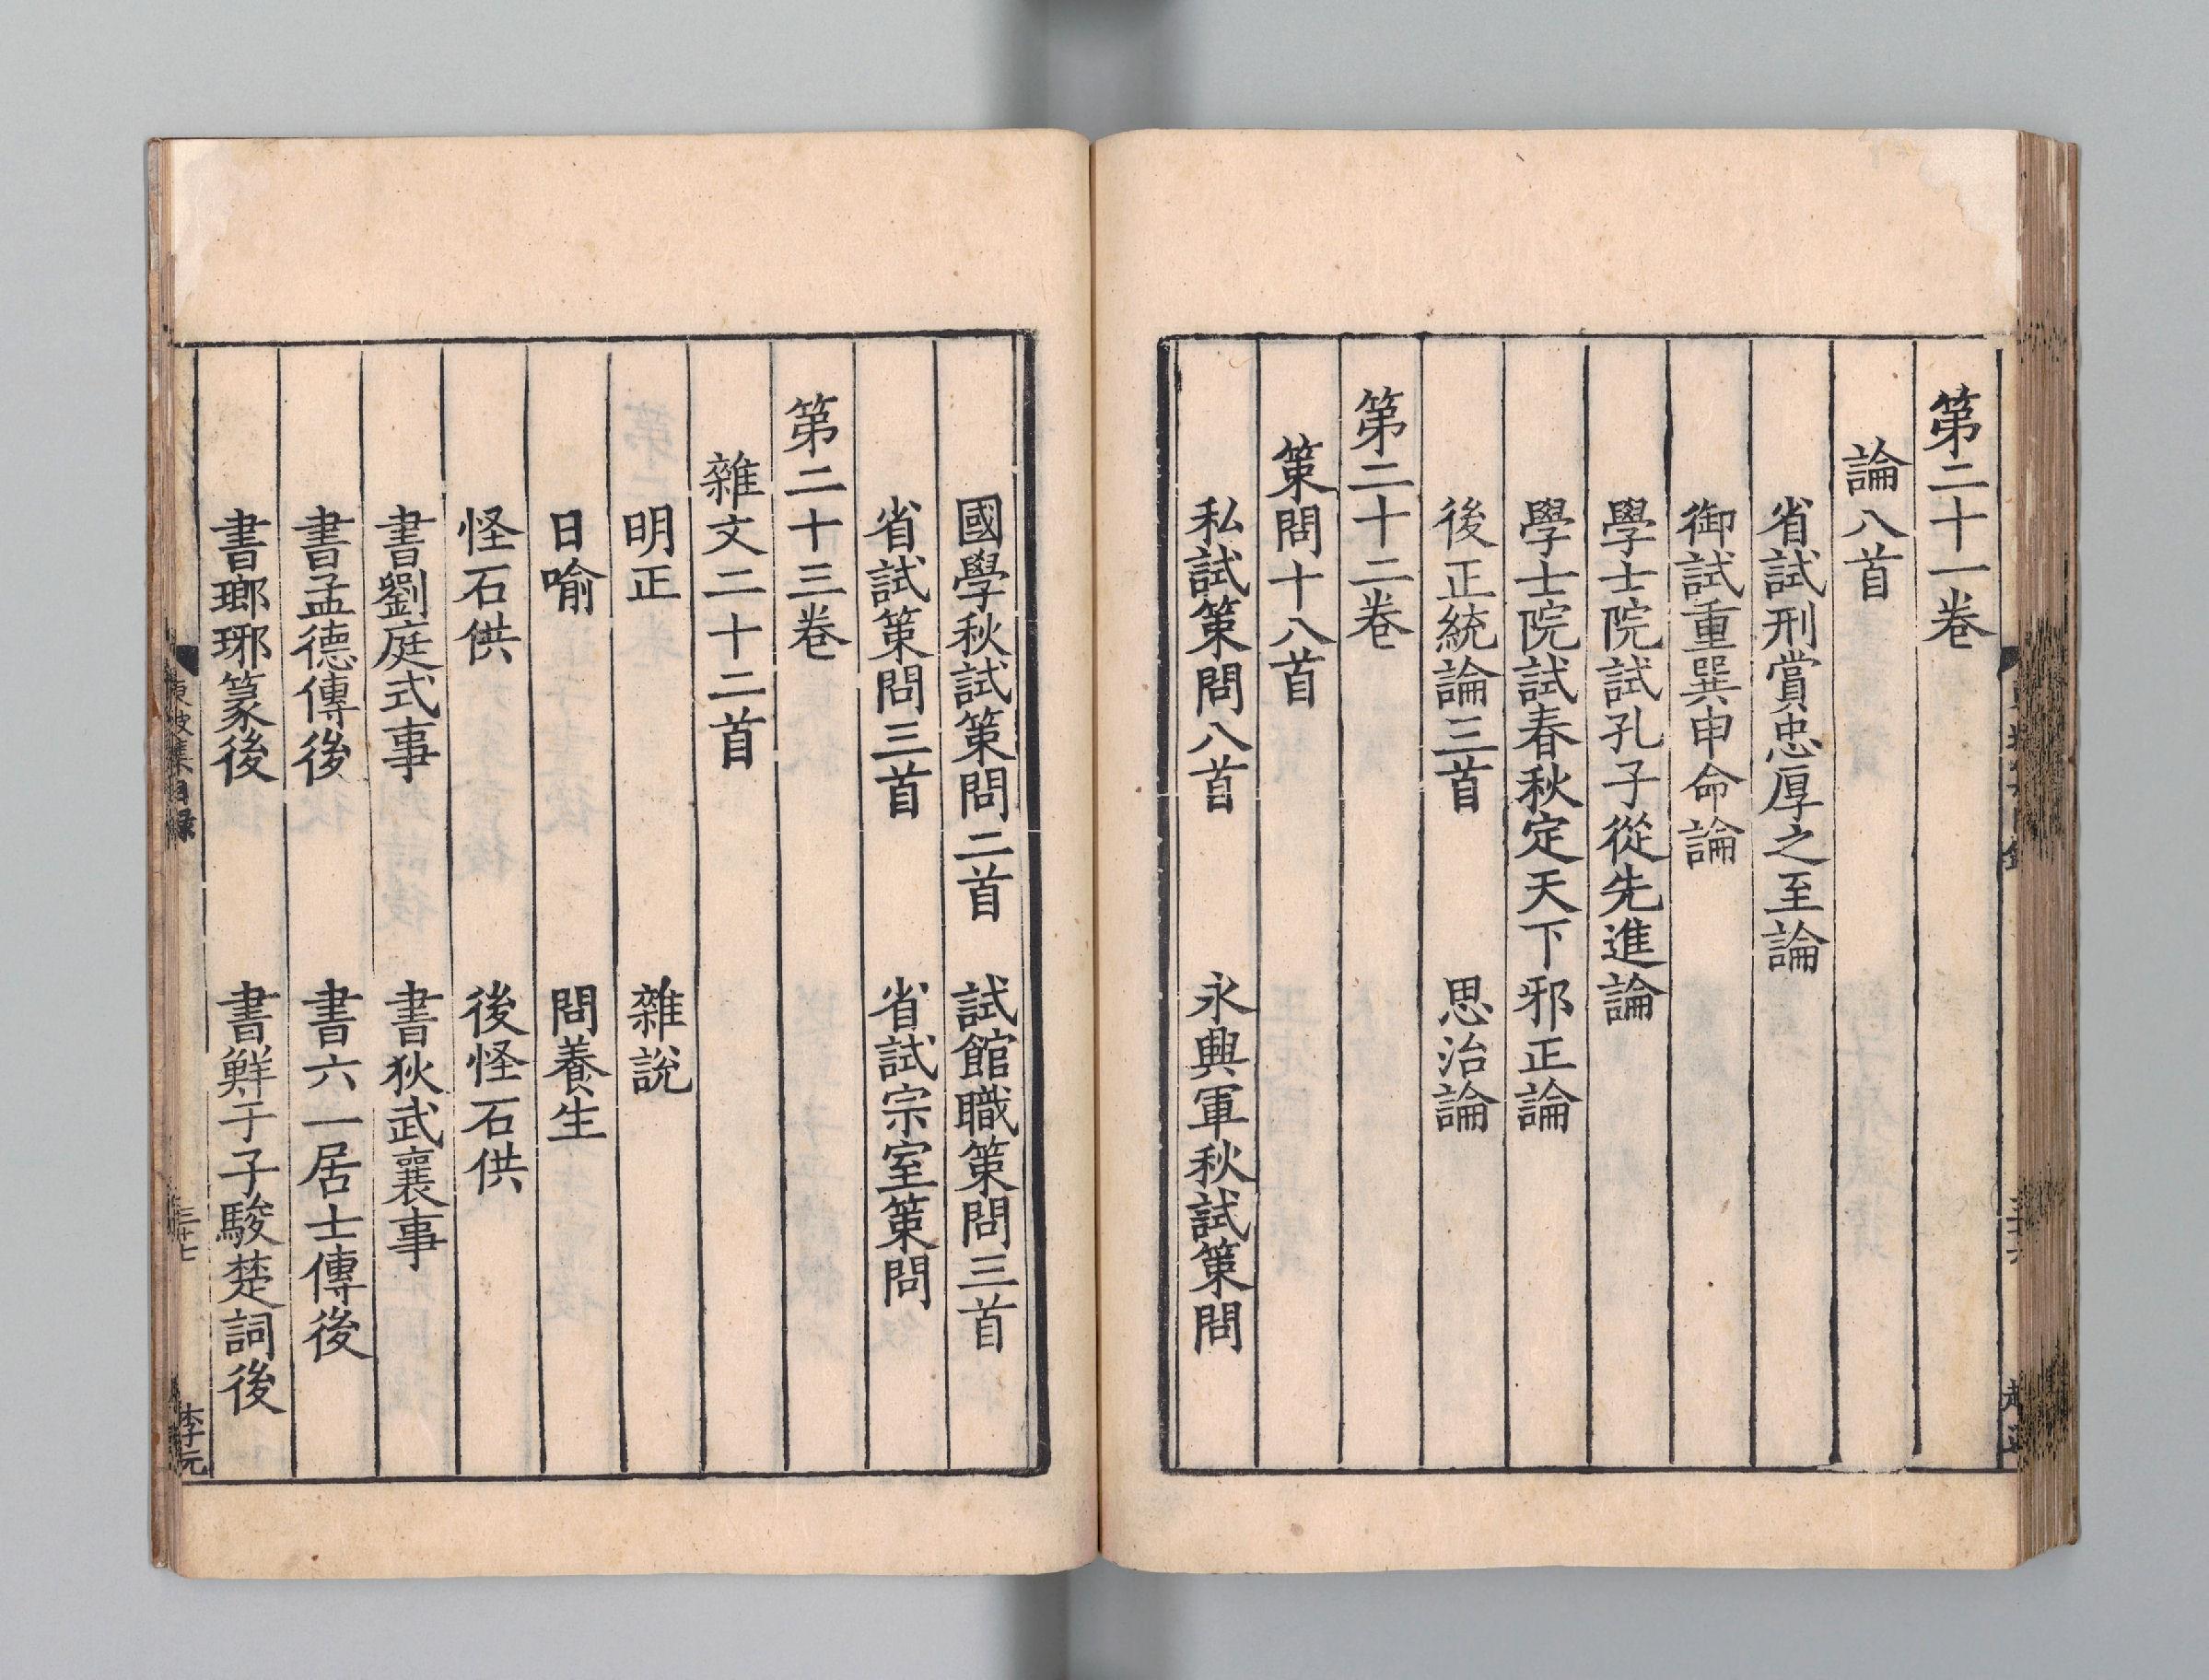 第二十一卷
論八首
省試刑賞忠厚之至論
御試重巽申命論
學士院試孔子從先進論
學士院試春秋定天下邪正論
後正統論三首　思治論
第二十二卷
策問十八首
私試策問八首　永興軍秋試策問
國學秋試策問二首　試館職策問三首
省試策問三首　省試宗室策問
第二十三卷
雜文二十二首
明正　雜說
日喻　問養生
怪石供　後怪石供
書劉庭式事　書狄武襄事
書孟德傳後　書六一居士傳後
書瑯琊篆後　書鮮于子駿楚詞後
東坡集目錄　三十七　李元